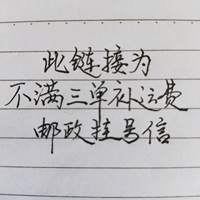 此链接为
不满三单补运费
邮政挂号信